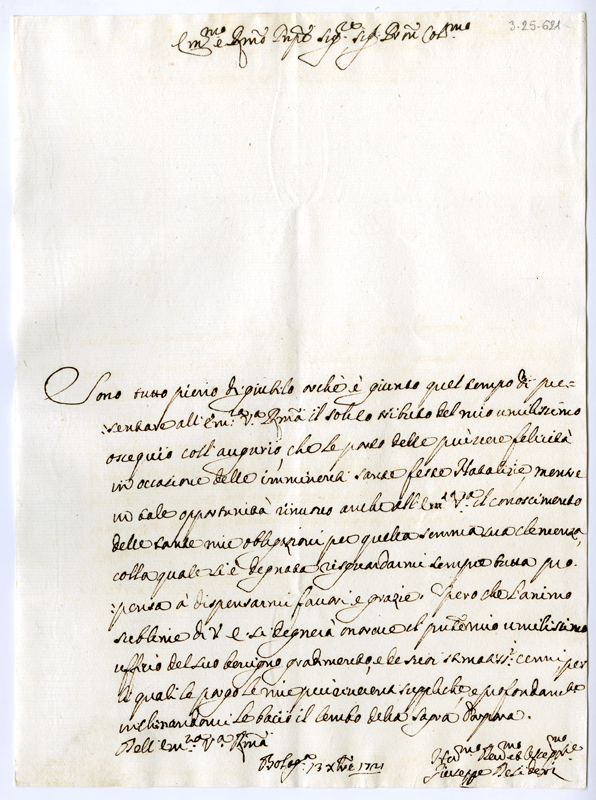 3-25-621
Em.mo e Rmo Sig.re Sig. Pron Col.mo
Sono tutto pieno di giubilo orchè è giunto quel tempo di pre=
:sentare all'Em.a V.a Rma il solito tributo del mio umilissimo
ossequio coll'augurio, che le porto delle più vere felicità
in occasione delle imminenti sante feste Natalizie, mentre
in tale opportunità rinuovo anche all'Em.a V.a il conoscimento
delle tante mie obligazioni per quella somma sua clemenza,
colla quale si è degnata risguardarmi sempre tutta pro=
:pensa à dispensarmi favori e grazie. Spero che l'animo
sublime di V E si degnerà onorare il prnte mio umilissimo
uffizio del suo benigno gradimento, e de suoi stimatiss.i cenni per
li quali le porgo le mie più riverenti suppliche, e profondam.te
inchinandomi le bacio il lembo della Sagra Porpora.
Dell'Em.za V.a Rma
Bolog.a 13 Xbre 1721
Um.mo Dev.mo ed
Giuseppe Desideri